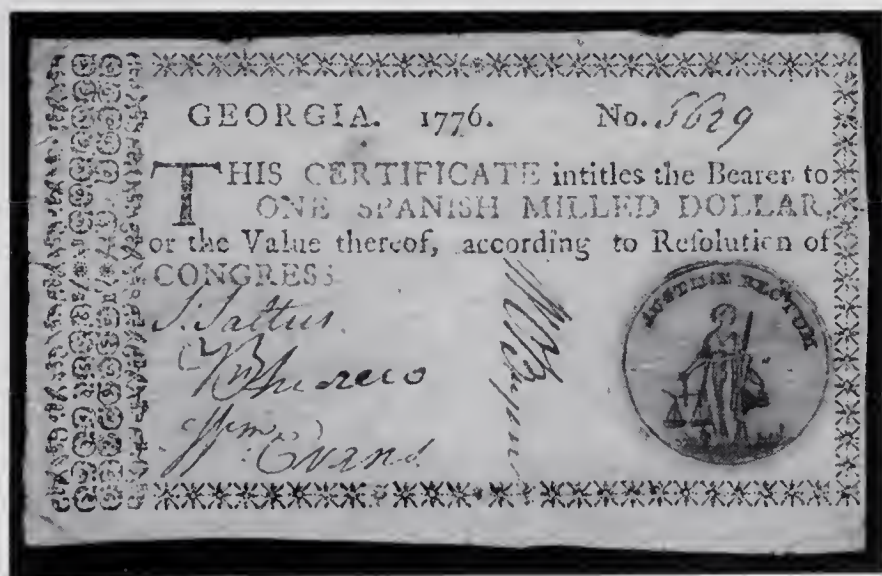 GEORGIA. 1776. No. 5629
THIS CERTIFICATE intitles the Bearer to
ONE SPANISH MILLED DOLLAR,
or the Value thereof, according to Reſolution of
CONGRESS
JUSTITIÆ RECTUM
Wm. Evans